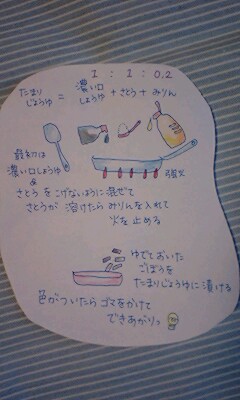 1 : 1 : 0.2
たまりじょうゆ = 濃い口しょうゆ + さとう + みりん
強火
最初は
濃い口しょうゆ
&
さとうをこげないように混ぜて
さとうが溶けたらみりんを入れて
火を止める
ゆでておいた
ごぼうを
たまりじょうゆに漬ける
色がついたらゴマをかけて
できあがりっ